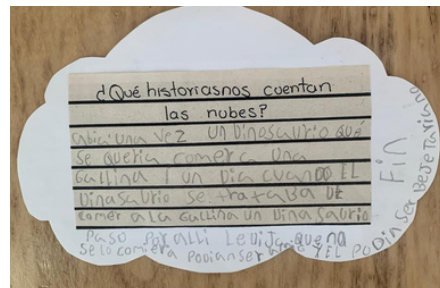 ¿Qué historiasnos cuentan
las nubes?
Una vez un Dinosaurio que
se queria comer a una
Gallina I un Dia cuando EL
Dinasaurio se trataba DE
comer a la Gallina un Dinasaurio
Paso por alli Le Dijo que no
se lo comiera podian ser
Y EL PODIA SER BEJETARIANO
FIN